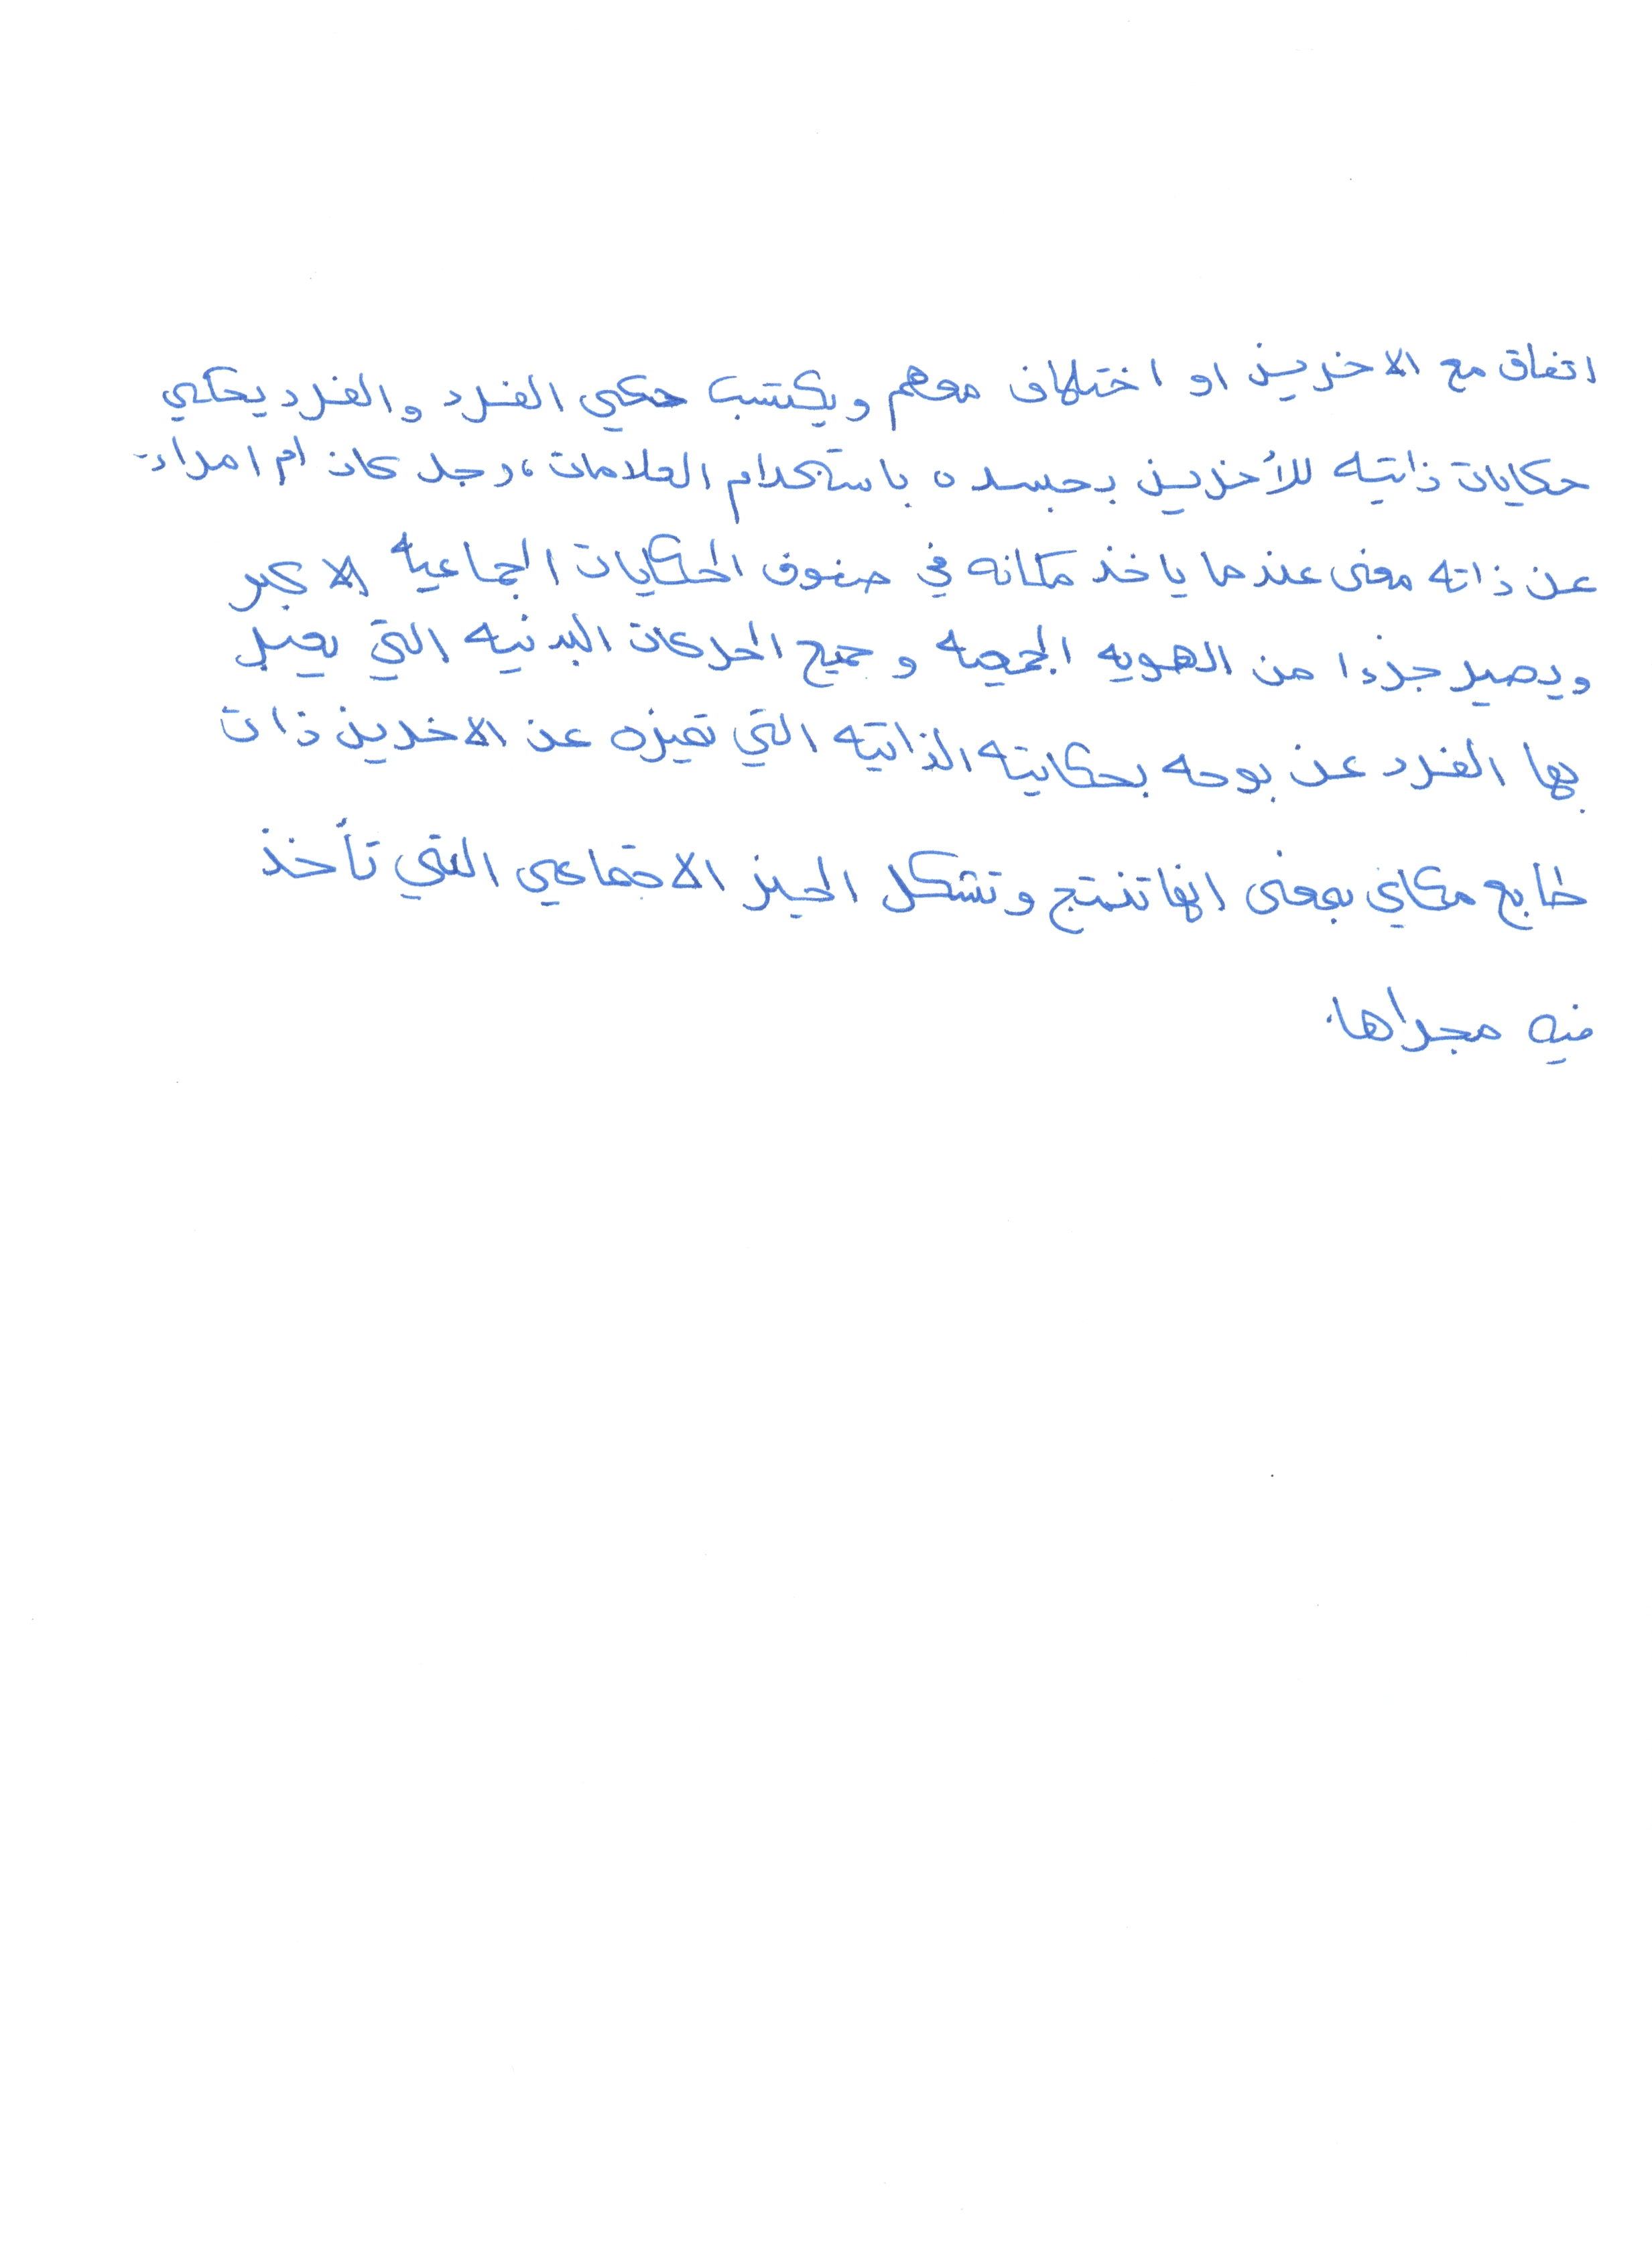 اتفاق مع الاخرين او اختلاف معهم ويكتسب حكي الفرد والفرد يحكي
حكايات ذاتيه للأخرين بجسده باستخدام العلامات، رجل كان ام امراء
عن ذاته معنى عندما ياخذ مكانه في صفوف الحكايات الجماعيه الاكبر
ويصير جزءا من الهويه الجمعيه وجميع الحركات البدنيه التي يعبر
بها الفرد عن بوحه بحكايته الذاتيه التي تميزه عن الاخرين ذات
طابع مكاني بمعنى انها تنتج وتشكل الحيز الاجتماعي التي تأخذ
فيه مجراها.